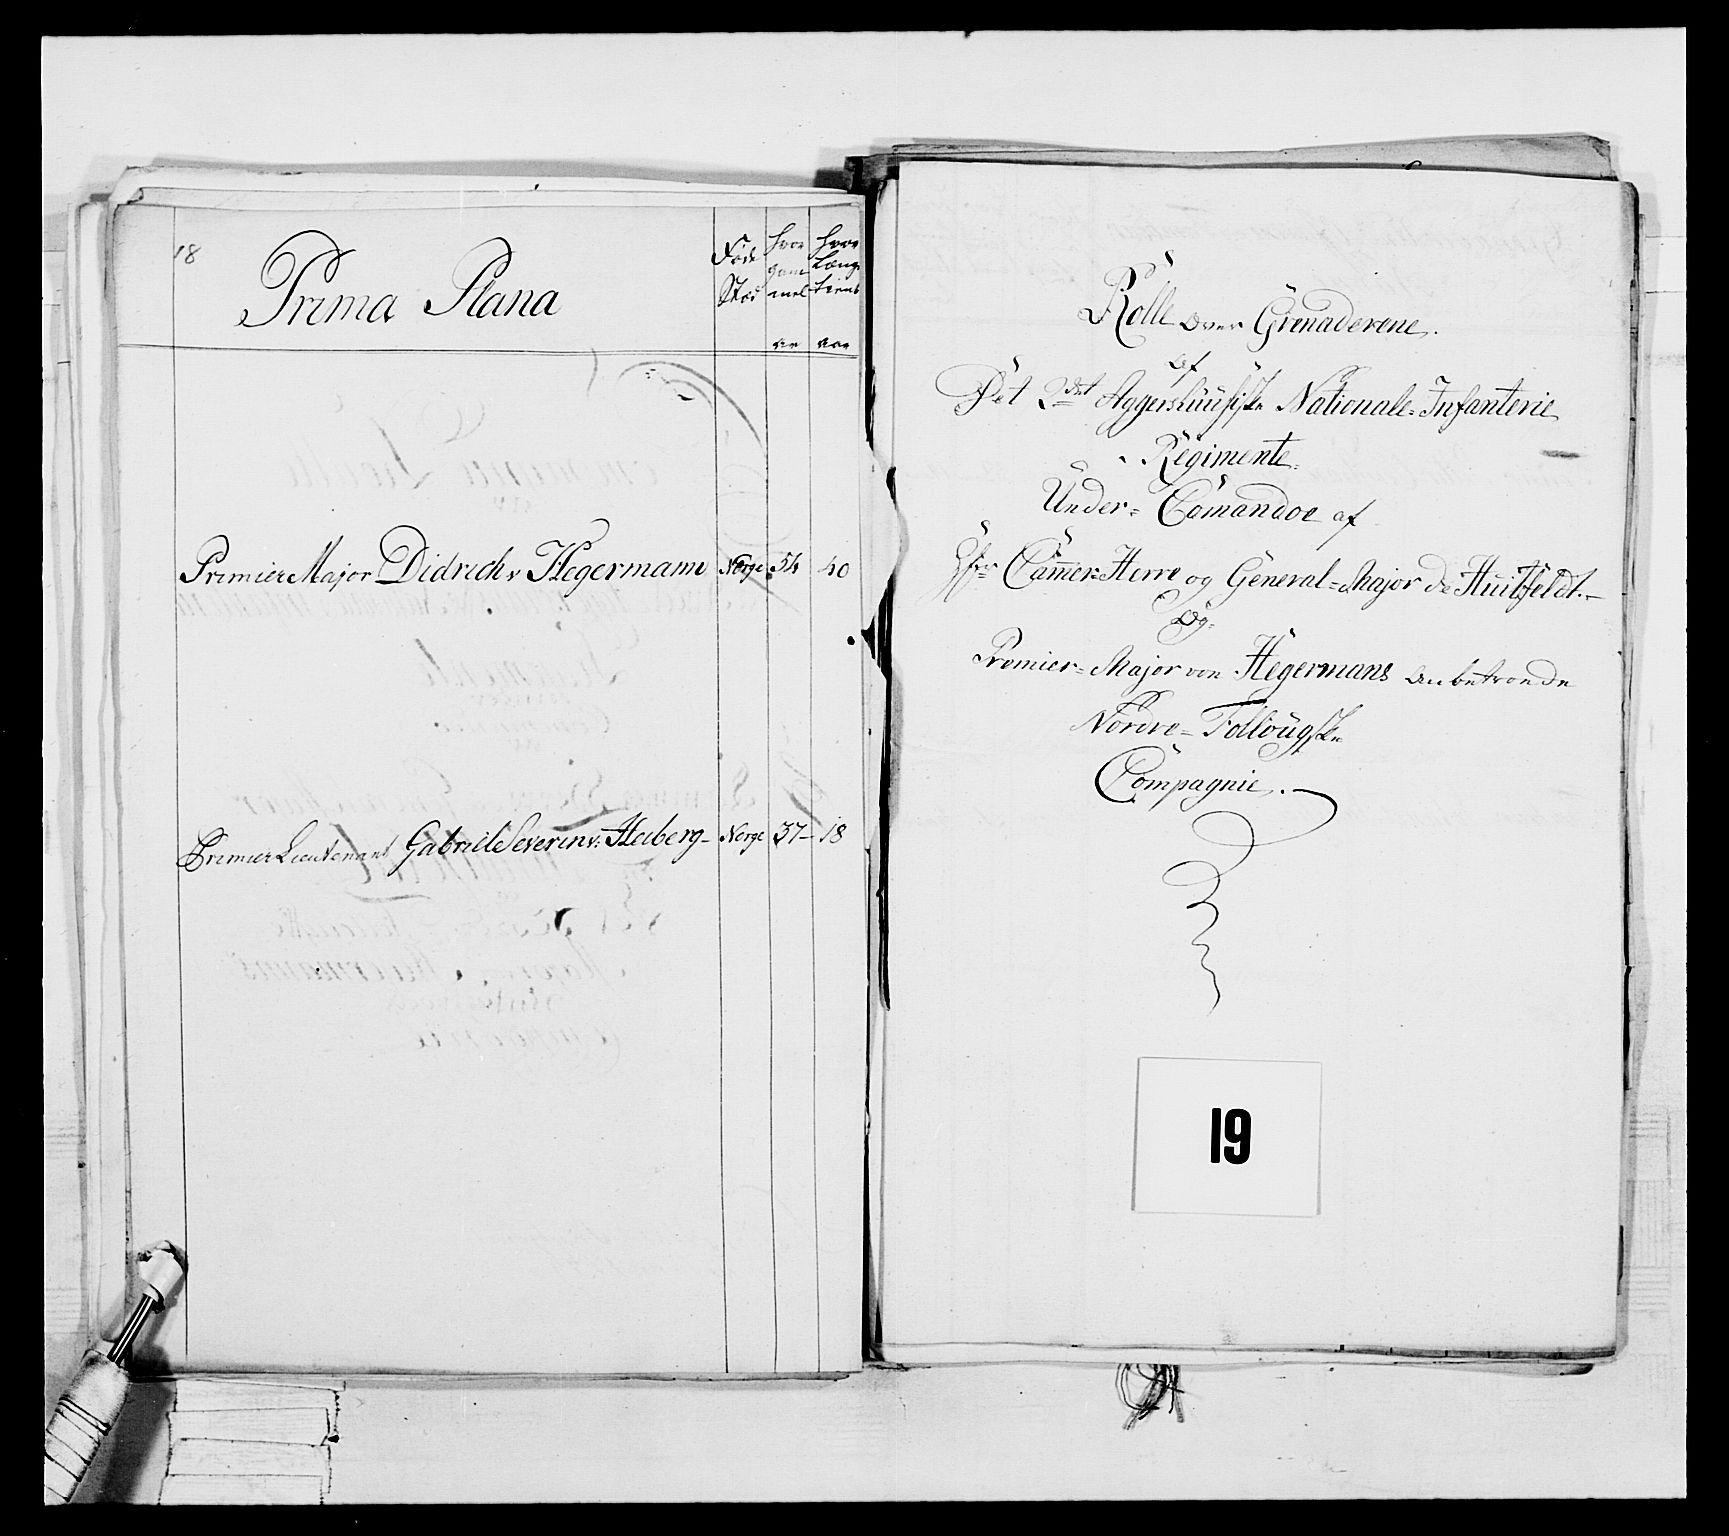 18
Prima Plana
Föde Stæd
hvor gam mel
hvor Længe tient
aar
aar
Premier Major Didrich v Hegermann Norge 54 40
Premier Lieutenant Gabriel Severin v: Heiberg Norge 37 18
Rolle over Grenaderene.
af
Det 2det Aggershuusiske Nationale Infanterie
Regimente.
Under Comandoe af
Hr Cammer Herre og General Major de Huitfeldt.
Og
Premier Major von Hegermans anbetroede
Nordre Follougske
Compagnie.
19